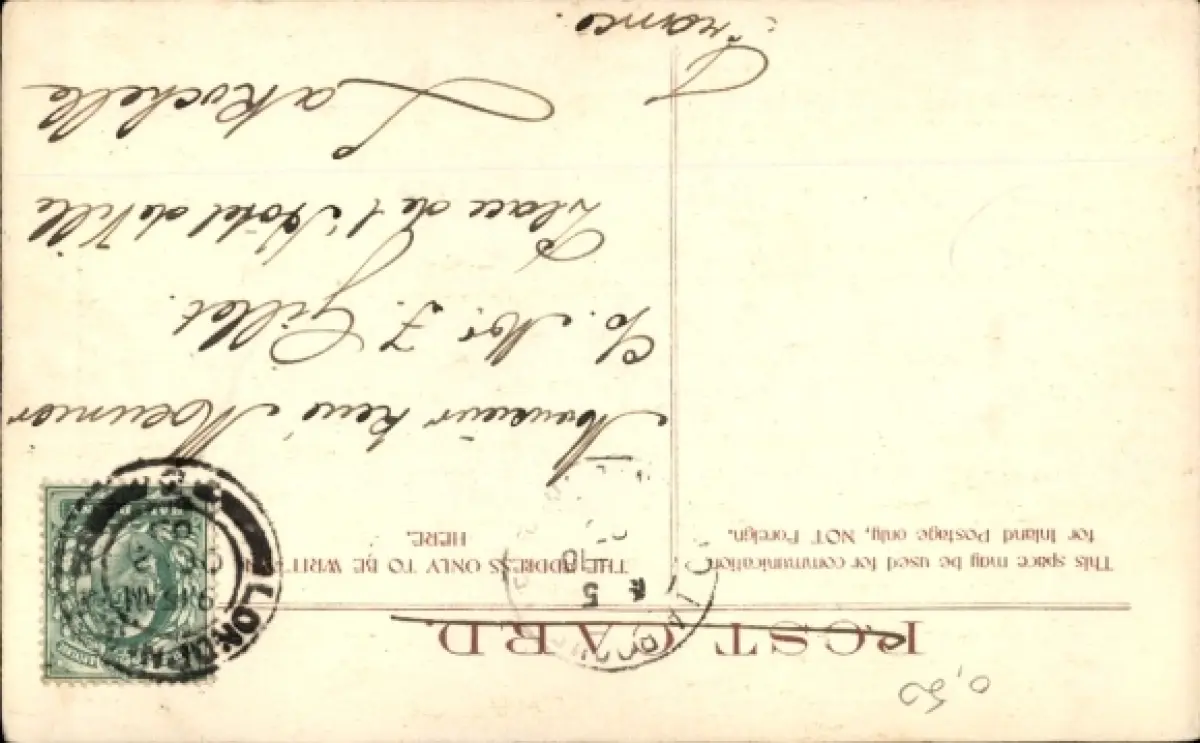 POST CARD.
This space may be used for communication
for Inland Postage only, NOT Foreign.
THE ADDRESS ONLY TO BE WRITTEN
HERE.
LONDON
9.15 AM
OC 2
05
Monsieur René
c/o. Mr. J. Gillet.
Place de l'Hôtel de Ville
La Rochelle
France.
0,50